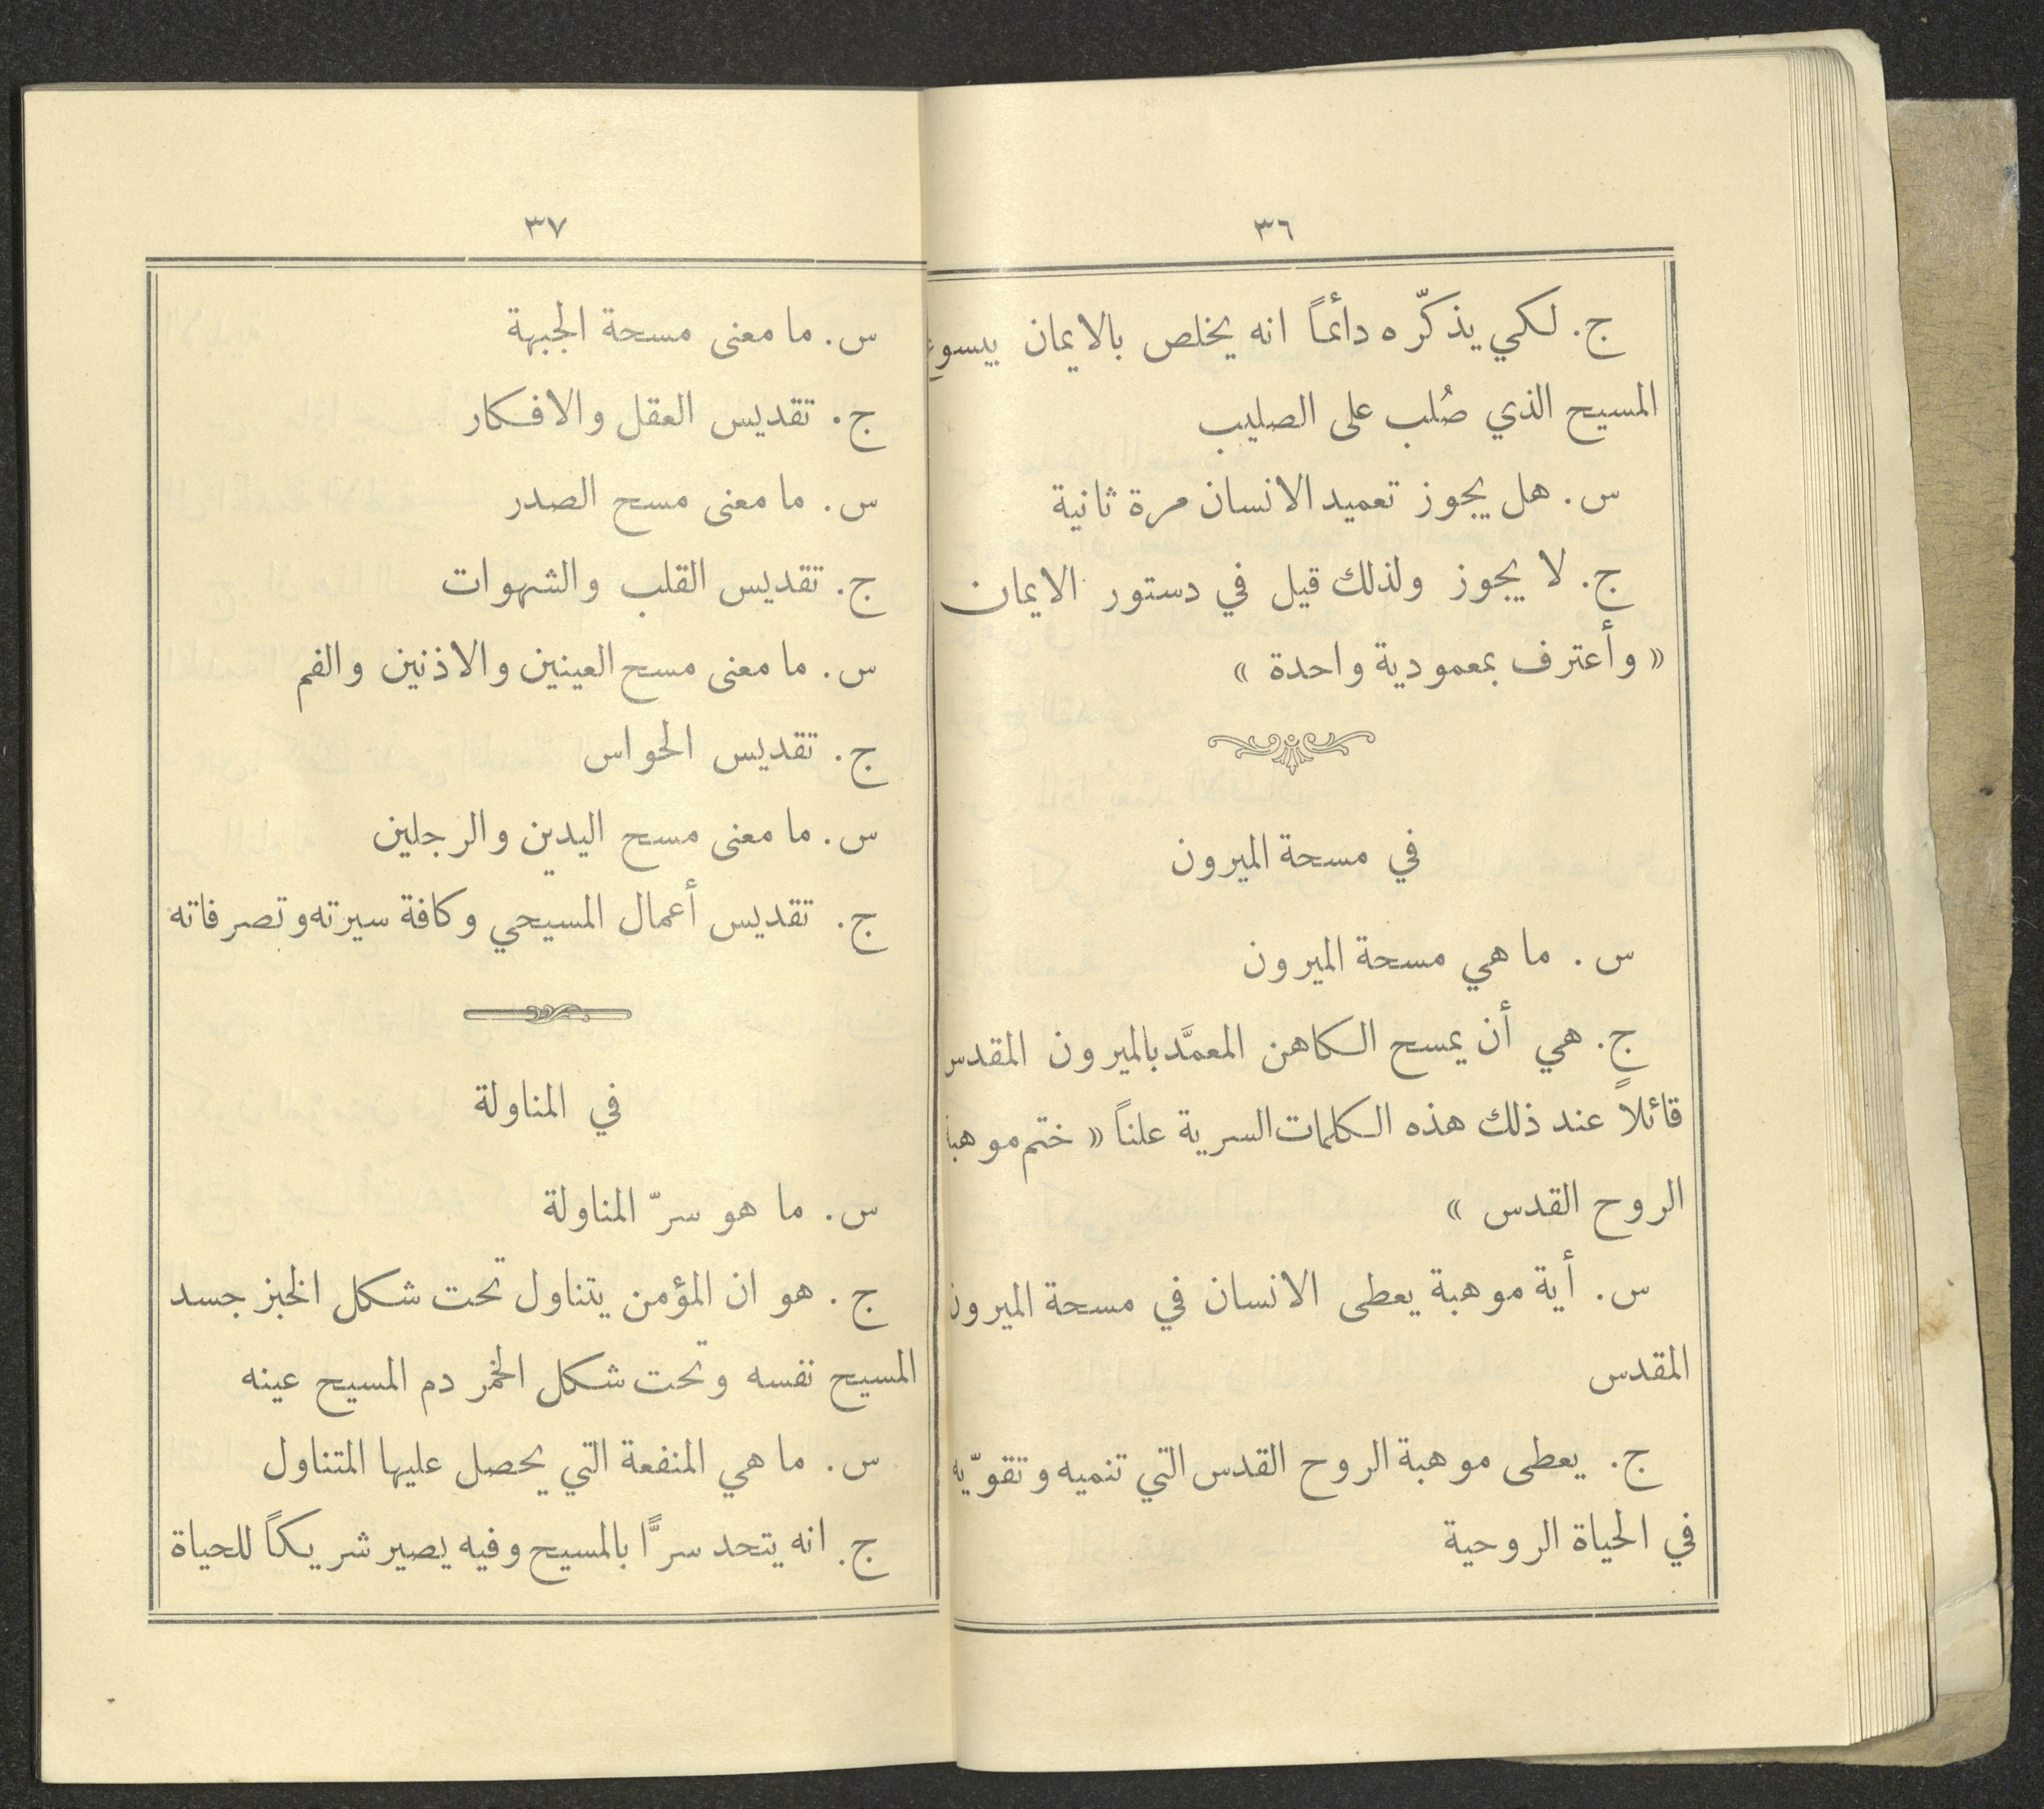 ٣٦
ج. لكي يذكّره دائمًا انه يخلص بالايمان بيسوع
المسيح الذي صُلب على الصليب
س. هل يجوز تعميد الانسان مرة ثانية
ج. لا يجوز ولذلك قيل في دستور الايمان
« وأعترف بمعمودية واحدة »
في مسحة الميرون
س. ما هي مسحة الميرون
ج. هي أن يمسح الكاهن المعمَّد بالميرون المقدس
قائلاً عند ذلك هذه الكلمات السرية علناً « ختم موهبة
الروح القدس »
س. أية موهبة يعطى الانسان في مسحة الميرون
المقدس
ج. يعطى موهبة الروح القدس التي تنميه وتقوّيه
في الحياة الروحية
٣٧
س. ما معنى مسحة الجبهة
ج. تقديس العقل والافكار
س. ما معنى مسح الصدر
ج. تقديس القلب والشهوات
س. ما معنى مسح العينين والاذنين والفم
ج. تقديس الحواس
س. ما معنى مسح اليدين والرجلين
ج. تقديس أعمال المسيحي وكافة سيرته وتصرفاته
في المناولة
س. ما هو سرّ المناولة
ج. هو ان المؤمن يتناول تحت شكل الخبز جسد
المسيح نفسه وتحت شكل الخمر دم المسيح عينه
س. ما هي المنفعة التي يحصل عليها المتناول
ج. انه يتحد سرًّا بالمسيح وفيه يصير شريكاً للحياة